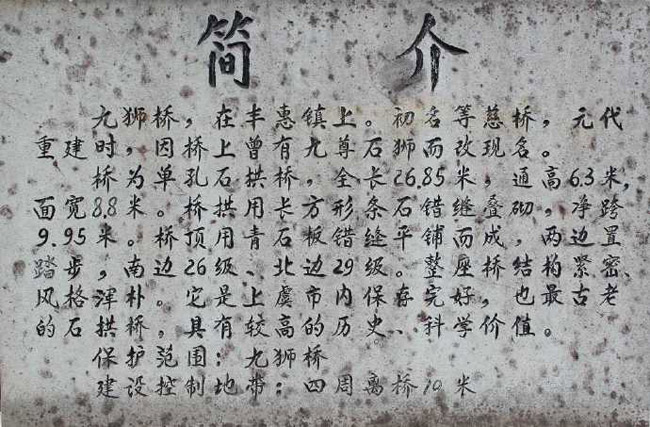 简介
九狮桥，在丰惠镇上。初名等慈桥，元代
重建时，因桥上曾有九尊石狮而改现名。
桥为单孔石拱桥，全长26.85米，通高6.3米，
面宽8.8米。桥拱用长方形条石错缝叠砌，净跨
9.95米。桥顶用青石板错缝平铺而成，两边置
踏步，南边26级、北边29级。整座桥结构紧密、
风格浑朴。它是上虞市内保存完好，也最古老
的石拱桥，具有较高的历史、科学价值。
保护范围：九狮桥
建设控制地带：四周离桥10米